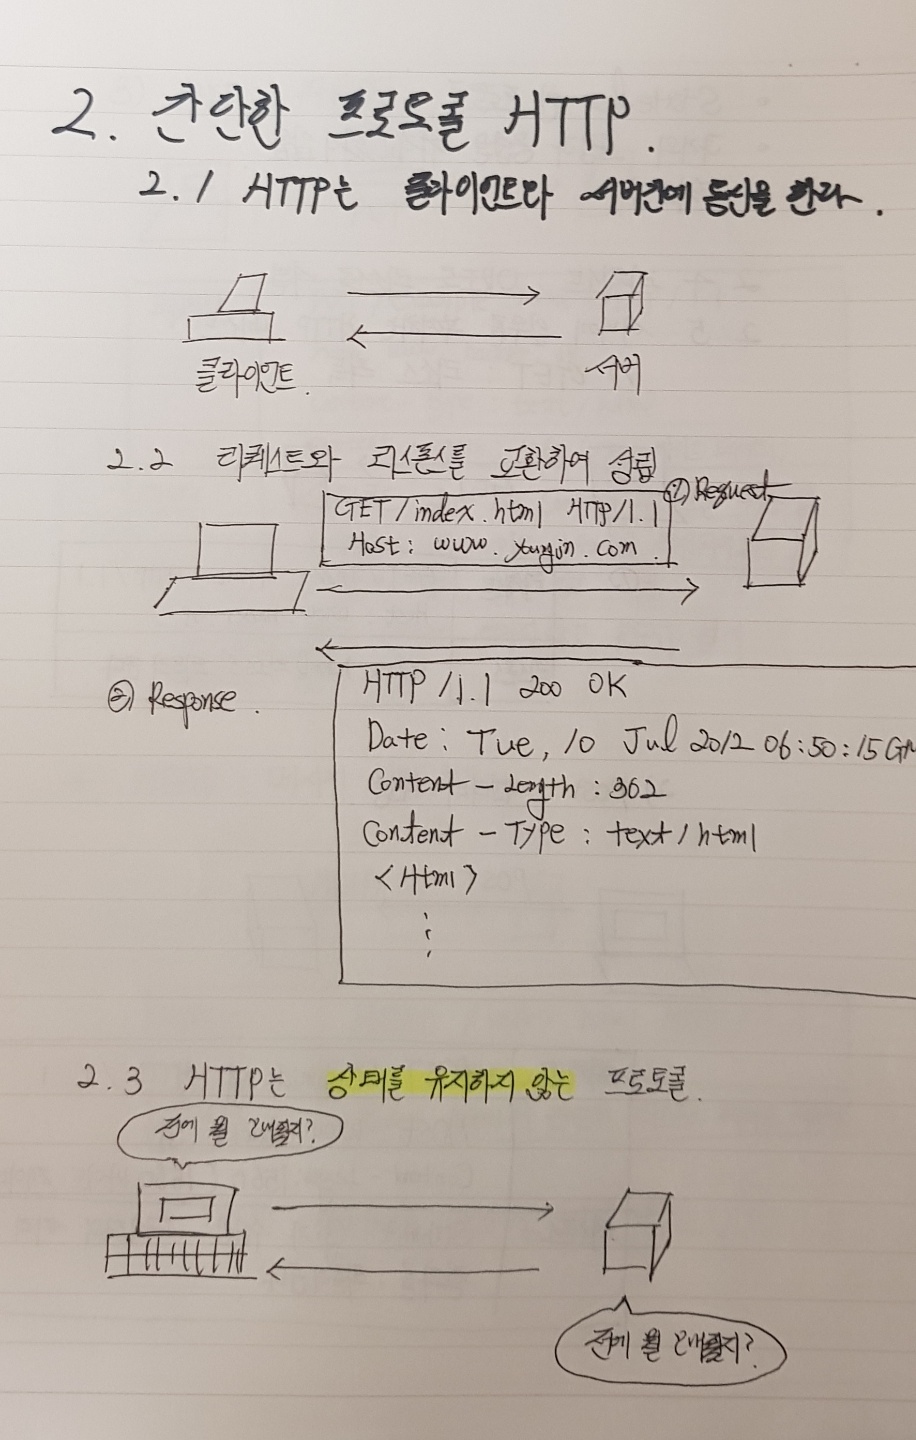 2. 간단한 프로토콜 HTTP.
2.1 HTTP는 클라이언트와 서버간에 통신을 한다.
클라이언트.
서버
2.2 리퀘스트와 리스폰스를 교환하여 성립
① Request
GET /index.html HTTP/1.1
Host: www.yungin.com
② Response.
HTTP/1.1 200 OK
Date: Tue, 10 Jul 2012 06:50:15 GM
Content-Length: 362
Content-Type: text/html
<Html>
2.3 HTTP는 상태를 유지하지 않는 프로토콜.
전에 뭘 보냈지?
전에 뭘 보냈지?